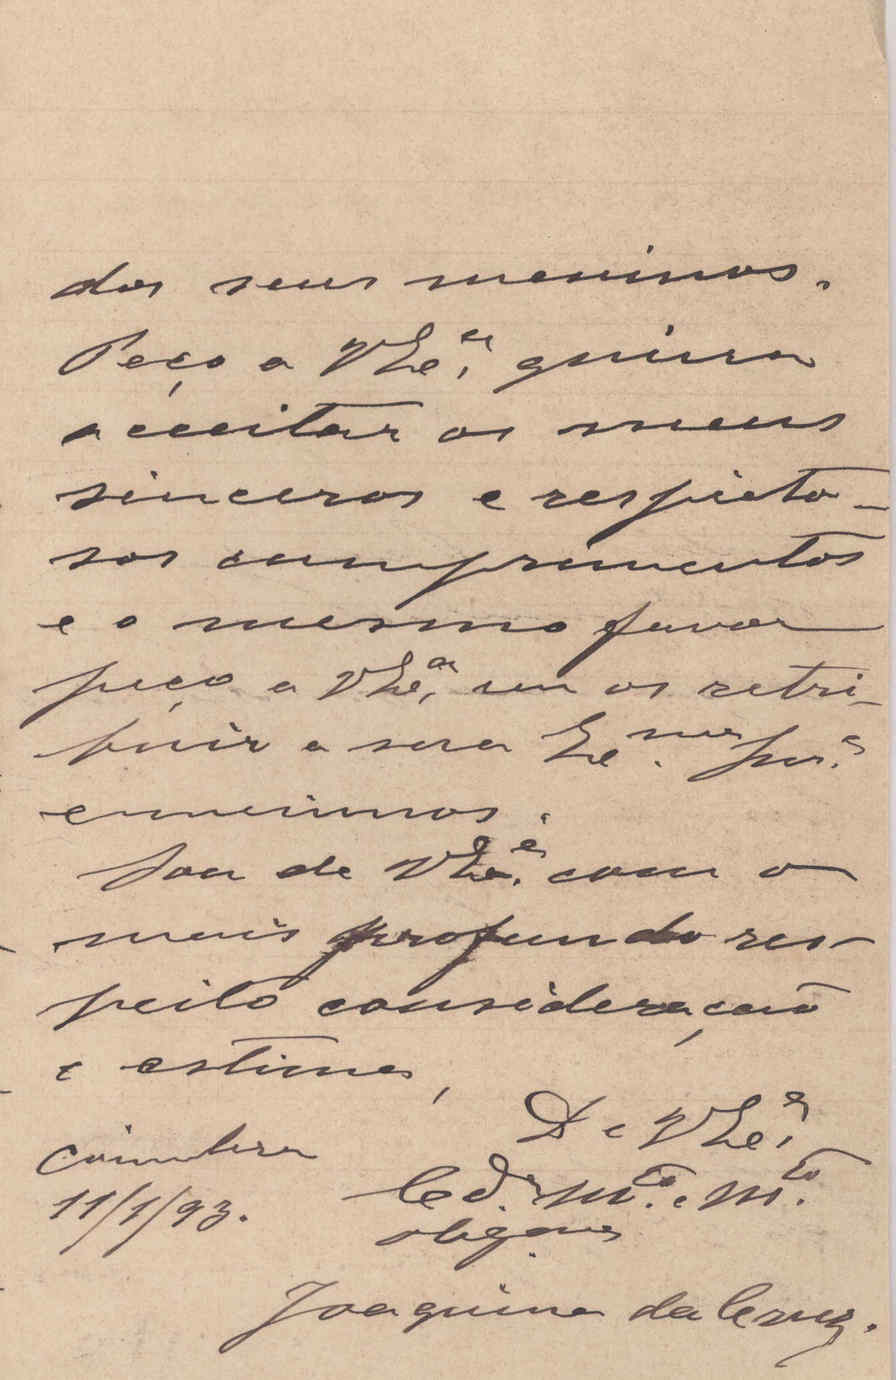 dos seus meninos.
Peço a VExcia. queira
acceitar os meus
sinceros e respeito-
sos cumprimentos
e o mesmo favor
peço a VExcia. em os retri-
buir a sera Exe.mas

Sou de VExcia. com o
mais profundo res-
peito consideração
e estima,
De VExcia.
Coimbra
11/1/93. Cd.r M.to e M.to
obgdo
Joaquina da Cruz.